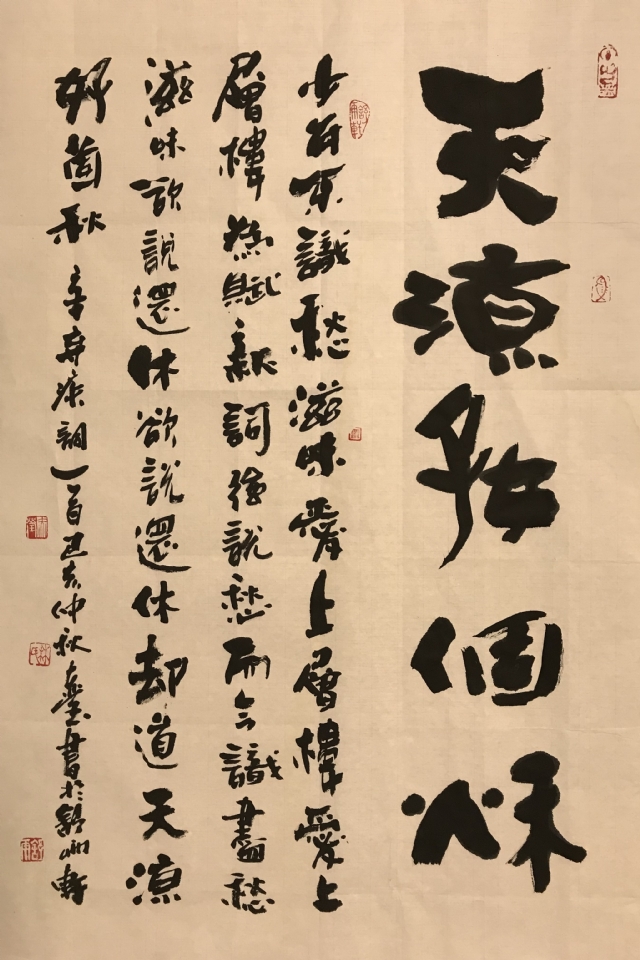 天涼好個秌
少年不識愁滋味愛上層樓愛上
層樓為賦新詞強說愁而今識盡愁
滋味欲說還休欲說還休却道天涼
好箇秋 辛弃疾詞一首己亥仲秋書於